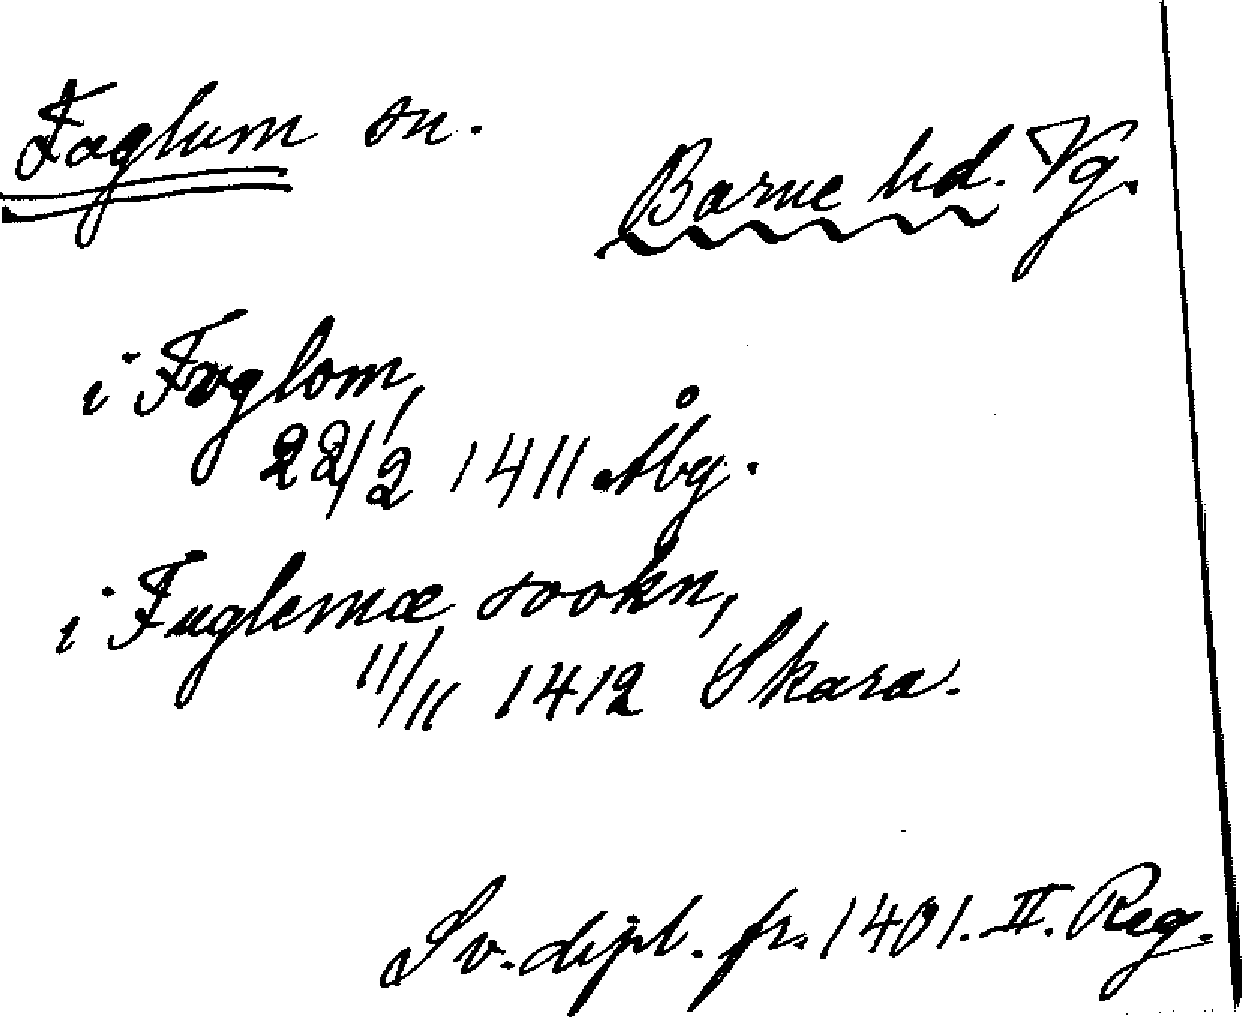 Foglum sn.
Barne hd. Vg.
i Foglom,
22/2 1411 Åbg.
i Fuglemæ sookn,
11/11 1412 Skara.
Sv. dipl. fr. 1401. II. Reg.